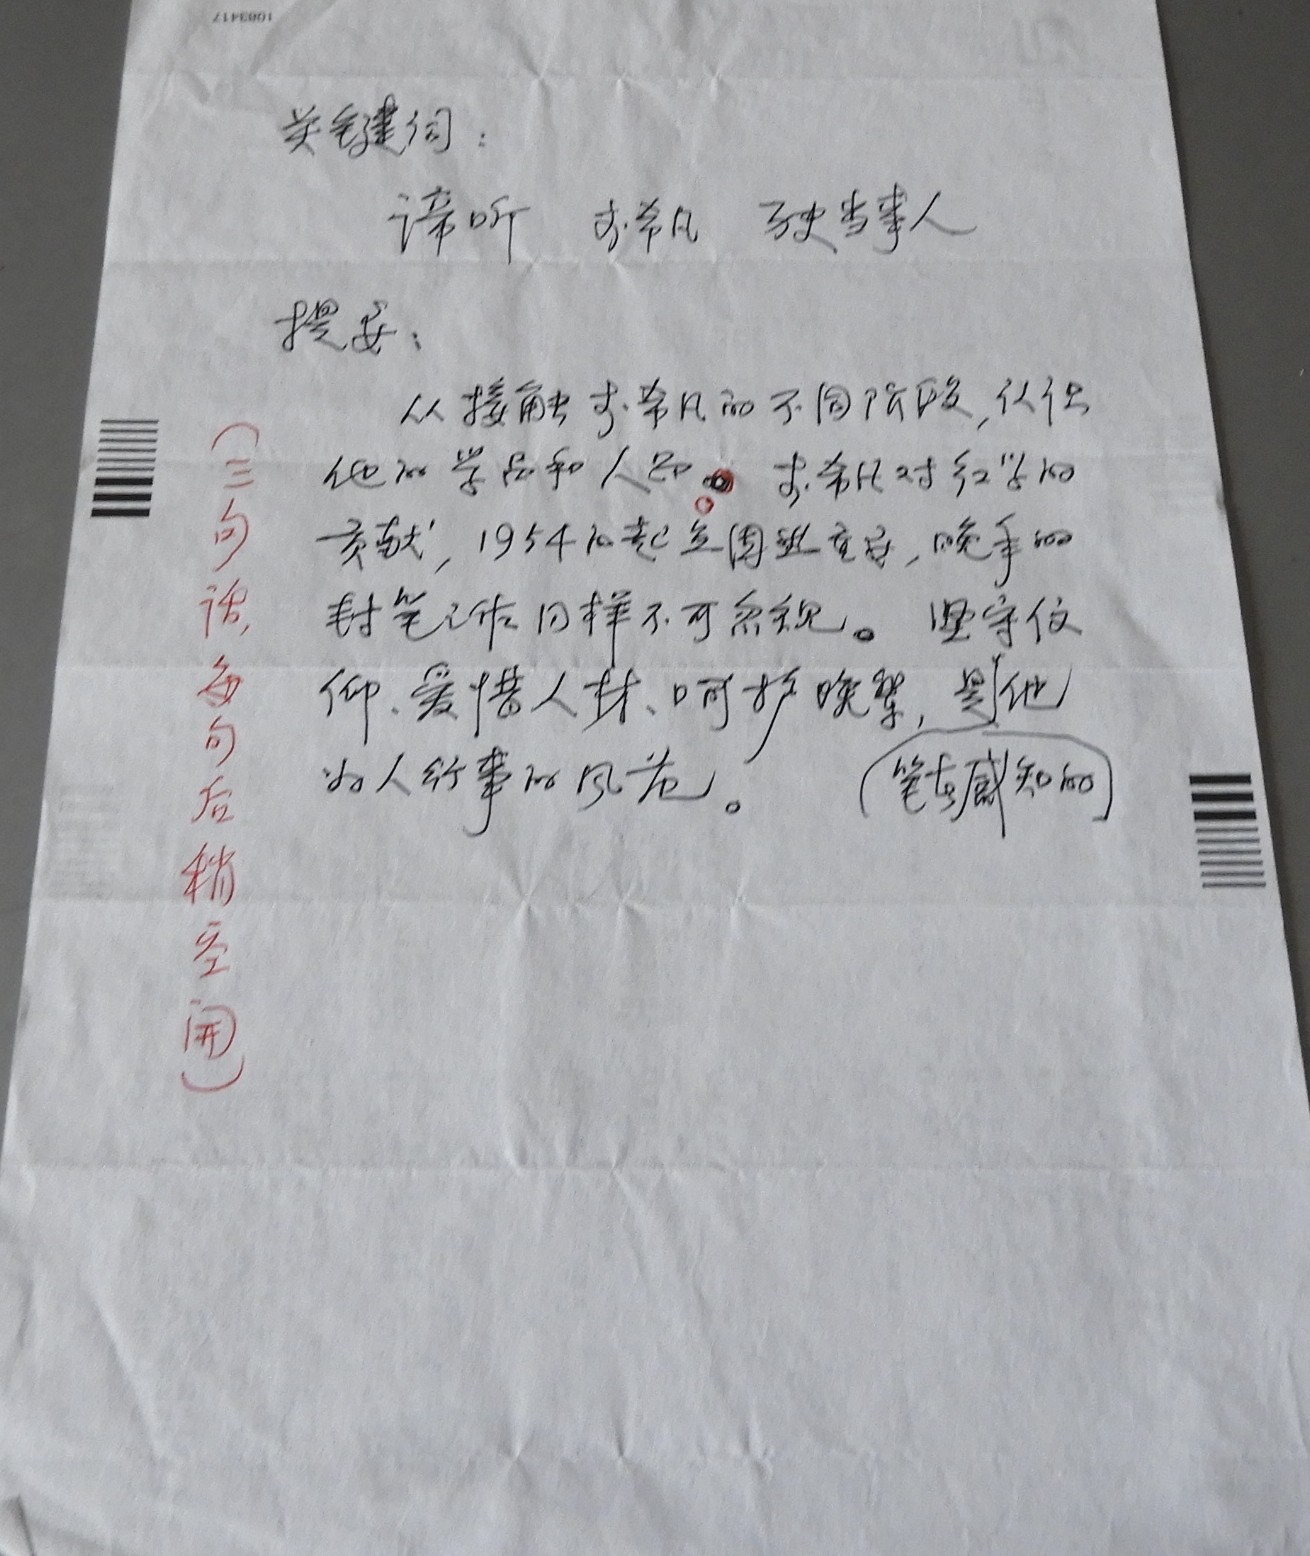 1083417
关键词：
谛听 李希凡 历史当事人
提要：
从接触李希凡的不同阶段，认识
他的学品和人品。 李希凡对红学的
贡献，1954的起点固然重要，晚年的
封笔之作同样不可忽视。 坚守信
仰、爱惜人材、呵护晚辈，是他
为人行事的风范。 （笔者感知的）
（三句话，每句后稍空开）